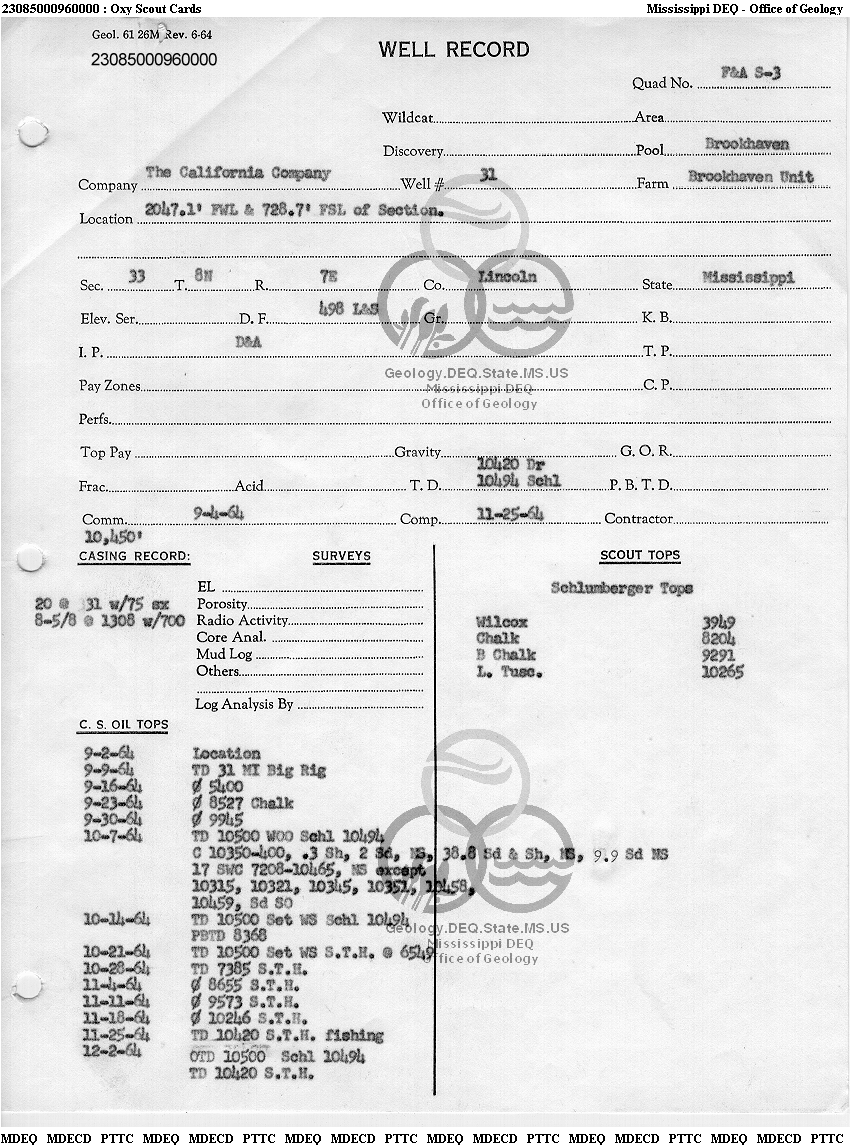 23085000960000 : Oxy Scout Cards Mississippi DEQ - Office of Geology
Geol. 61 26M Rev. 6-64
23085000960000
WELL RECORD
Quad No. F&A S-3
Wildcat Area
Discovery Pool Brookhaven
Company The California Company Well # 31 Farm Brookhaven Unit
Location 2047.1' FWL & 728.7' FSL of Section.
Sec. 33 T. 8N R. 7E Co. Lincoln State Mississippi
Elev. Ser. D. F. 498 L&S Gr. K. B.
I. P. D&A T. P.
Geology.DEQ.State.MS.US
Pay Zones C. P.
Mississippi DEQ
Office of Geology
Perfs.
Top Pay Gravity G. O. R.
10420 Dr
Frac. Acid T. D. 10494 Schl P. B. T. D.
Comm. 9-4-64 Comp. 11-25-64 Contractor
10,450'
CASING RECORD: SURVEYS SCOUT TOPS
EL Schlumberger Tops
20 @ 31 w/75 sx Porosity
8-5/8 @ 1308 w/700 Radio Activity Wilcox 3949
Core Anal. Chalk 8204
Mud Log B Chalk 9291
Others L. Tusc. 10265
Log Analysis By
C. S. OIL TOPS
9-2-64 Location
9-9-64 TD 31 MI Big Rig
9-16-64 Ø 5400
9-23-64 Ø 8527 Chalk
9-30-64 Ø 9945
10-7-64 TD 10500 WOO Schl 10494
C 10350-400, .3 Sh, 2 Sd, NS, 38.8 Sd & Sh, NS, 9.9 Sd NS
17 SWC 7208-10465, NS except
10315, 10321, 10345, 10351, 10458,
10459, Sd SO
10-14-64 TD 10500 Set WS Schl 10494
Geology.DEQ.State.MS.US
PBTD 8368
Mississippi DEQ
10-21-64 TD 10500 Set WS S.T.H. @ 6549
Office of Geology
10-28-64 TD 7385 S.T.H.
11-4-64 Ø 8655 S.T.H.
11-11-64 Ø 9573 S.T.H.
11-18-64 Ø 10246 S.T.H.
11-25-64 TD 10420 S.T.H. fishing
12-2-64 OTD 10500 Schl 10494
TD 10420 S.T.H.
MDEQ MDECD PTTC MDEQ MDECD PTTC MDEQ MDECD PTTC MDEQ MDECD PTTC MDEQ MDECD PTTC MDEQ MDECD PTTC